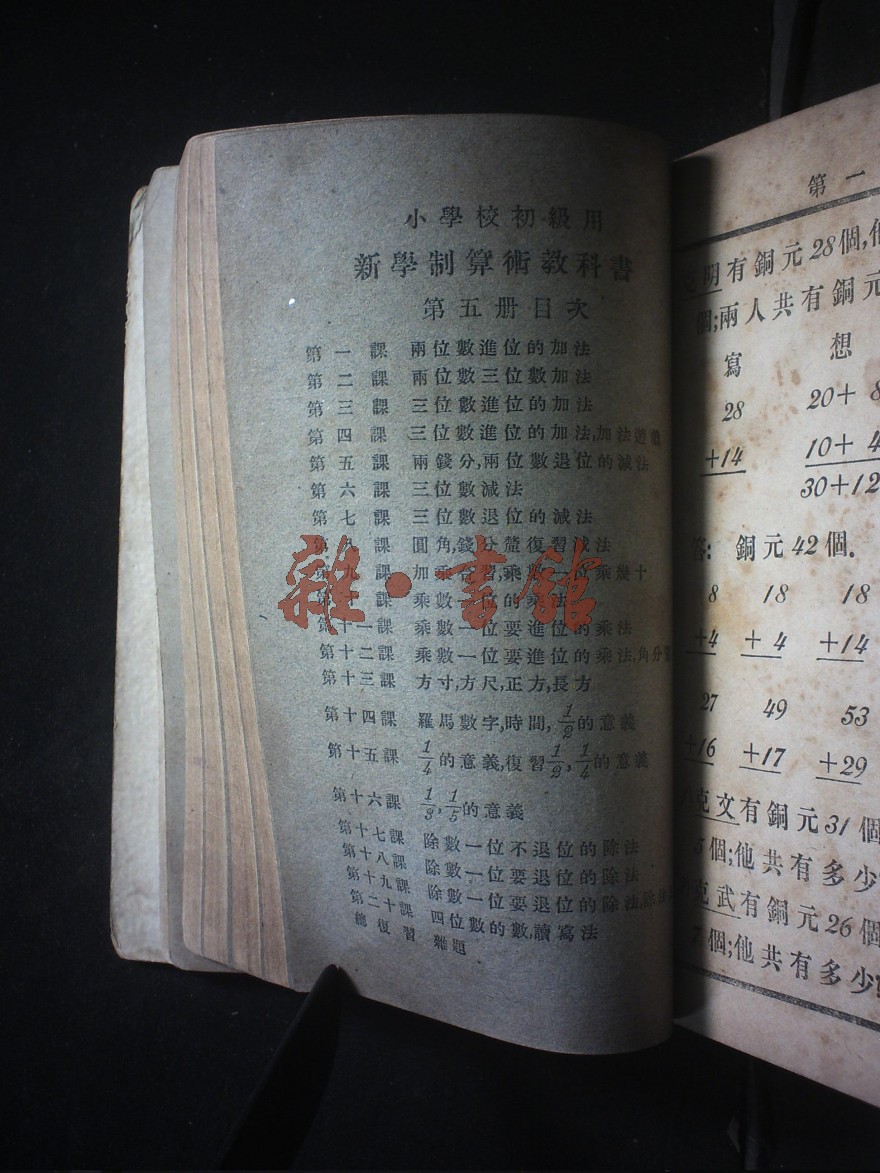 小學校初級用
新學制算術教科書
第五册目次
第一課 兩位數進位的加法
第二課 兩位數三位數加法
第三課 三位數進位的加法
第四課 三位數進位的加法,加法遊戲
第五課 兩錢分,兩位數退位的減法
第六課 三位數減法
第七課 三位數退位的減法
第八課 圓角,錢分釐復習減法
第九課 加乘合習,乘數一位乘幾十
第十課 乘數一位的乘法
第十一課 乘數一位要進位的乘法
第十二課 乘數一位要進位的乘法,角分
第十三課 方寸,方尺,正方,長方
第十四課 羅馬數字,時間,1/2的意義
第十五課 1/4的意義,復習1/2,1/4的意義
第十六課 1/3,1/5的意義
第十七課 除數一位不退位的除法
第十八課 除數一位要退位的除法
第十九課 除數一位要退位的除法,除法
第二十課 四位數的數,讀寫法
總復習 雜題
雜·書館
第一
明有銅元28個,他
個;兩人共有銅元
寫 想
28 20+8
+14 10+4
30+12
答: 銅元42個.
8 18 18
+4 +4 +14
27 49 53
+16 +17 +29
克文有銅元31個
個;他共有多少
克武有銅元26個
個;他共有多少